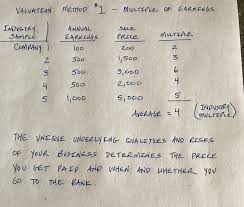 VALUATION METHOD #1 - MULTIPLE OF EARNINGS
INDUSTRY SAMPLE ANNUAL EARNINGS SALE PRICE MULTIPLE
COMPANY 1 100 200 2
2 500 1,500 3
3 500 3,000 6
4 500 2,000 4
5 1,000 5,000 5
AVERAGE = 4 (INDUSTRY MULTIPLE)
THE UNIQUE UNDERLYING QUALITIES AND RISKS
OF YOUR BUSINESS DETERMINES THE PRICE
YOU GET PAID AND WHEN AND WHETHER YOU
GO TO THE BANK.